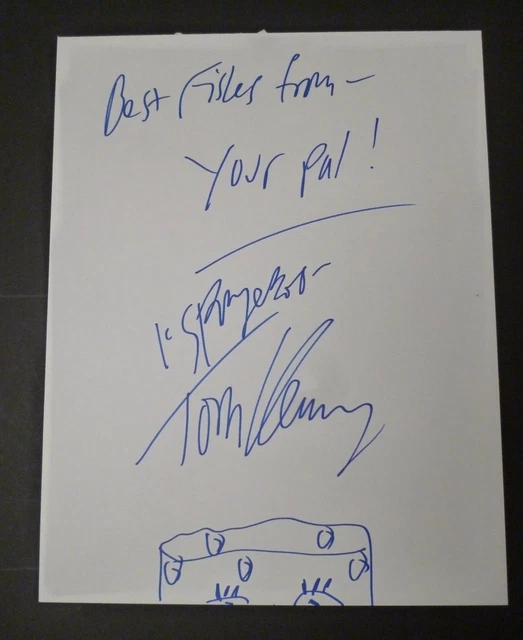 Best Fishes from —
Your pal!
"Spongebob"
Tom Kenny